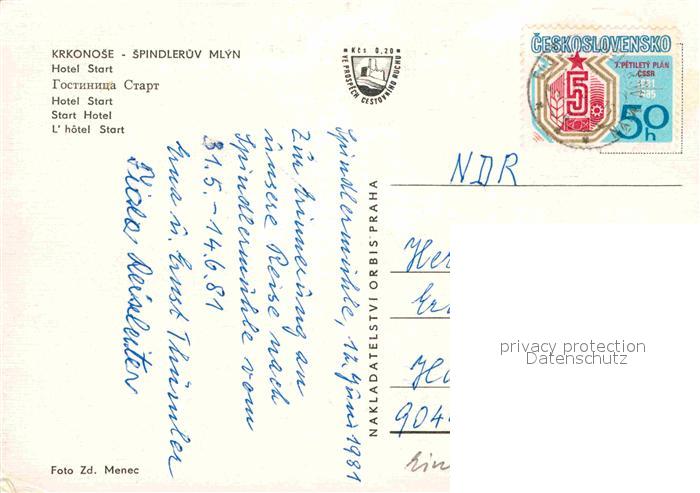 KRKONOŠE - ŠPINDLERŮV MLÝN
Hotel Start
Гостиница Старт
Hotel Start
Start Hotel
L' hôtel Start
Kčs 0,20
VE PROSPĚCH CESTOVNÍHO RUCHU
ČESKOSLOVENSKO
7. PĚTILETÝ PLÁN
ČSSR
1981
1985
5
50h
Spindlermühle, 12. Juni 1981
Zur Erinnerung an
unsere Reise nach
Spindlermühle vom
31.5. - 14.6.81
Erna u. Ernst Thümler
NAKLADATELSTVÍ ORBIS PRAHA
NDR
Her
Ern
904
privacy protection
Datenschutz
Foto Zd. Menec